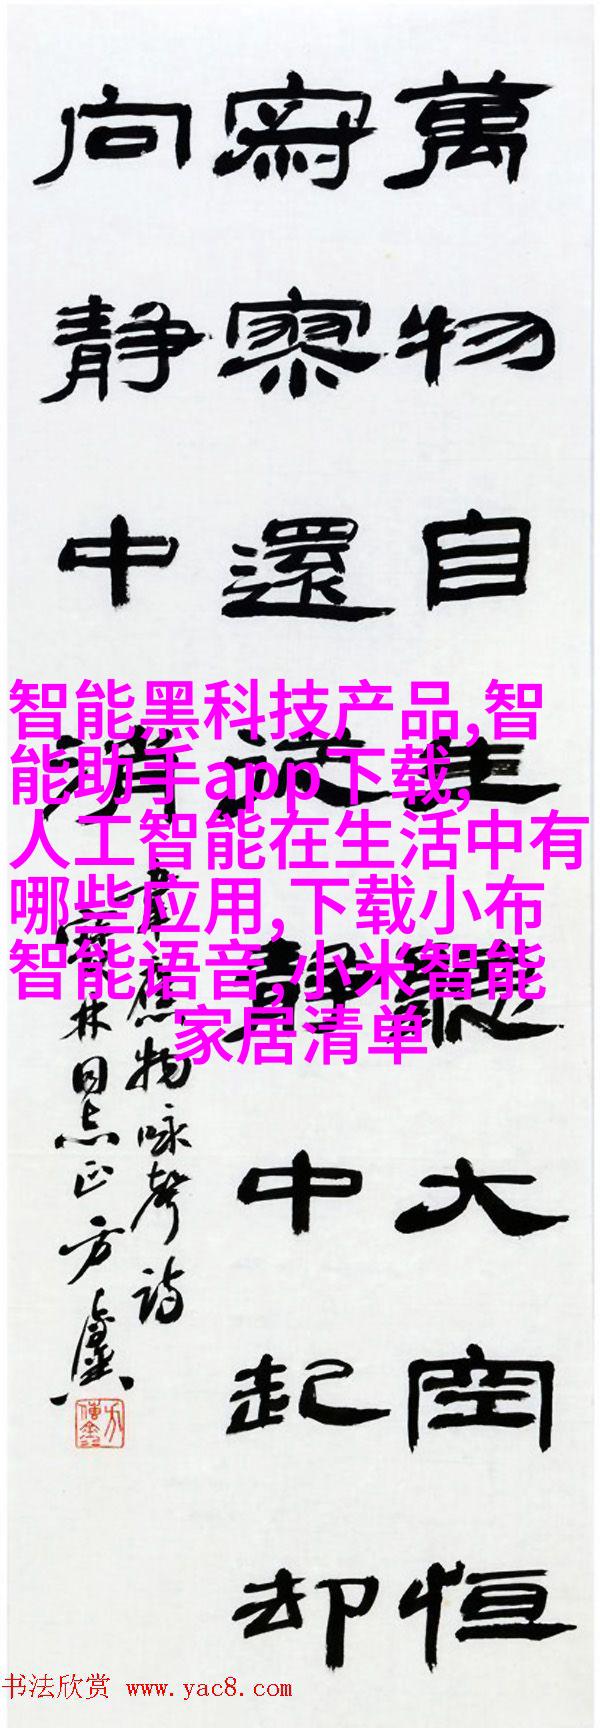 萬物自生聽大空恒
寂寥還從静中起却
向静中消
韋應物咏聲詩
寳林同志正方傳鑫
智能黑科技产品,智
能助手app下载,
人工智能在生活中有
哪些应用,下载小布
智能语音,小米智能
家居清单
书法欣赏 www.yac8.com